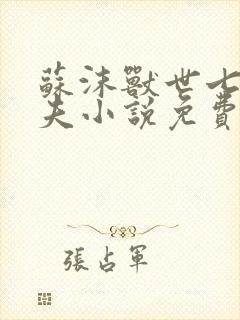 蘇沫獸世七
夫小說免費
張占軍